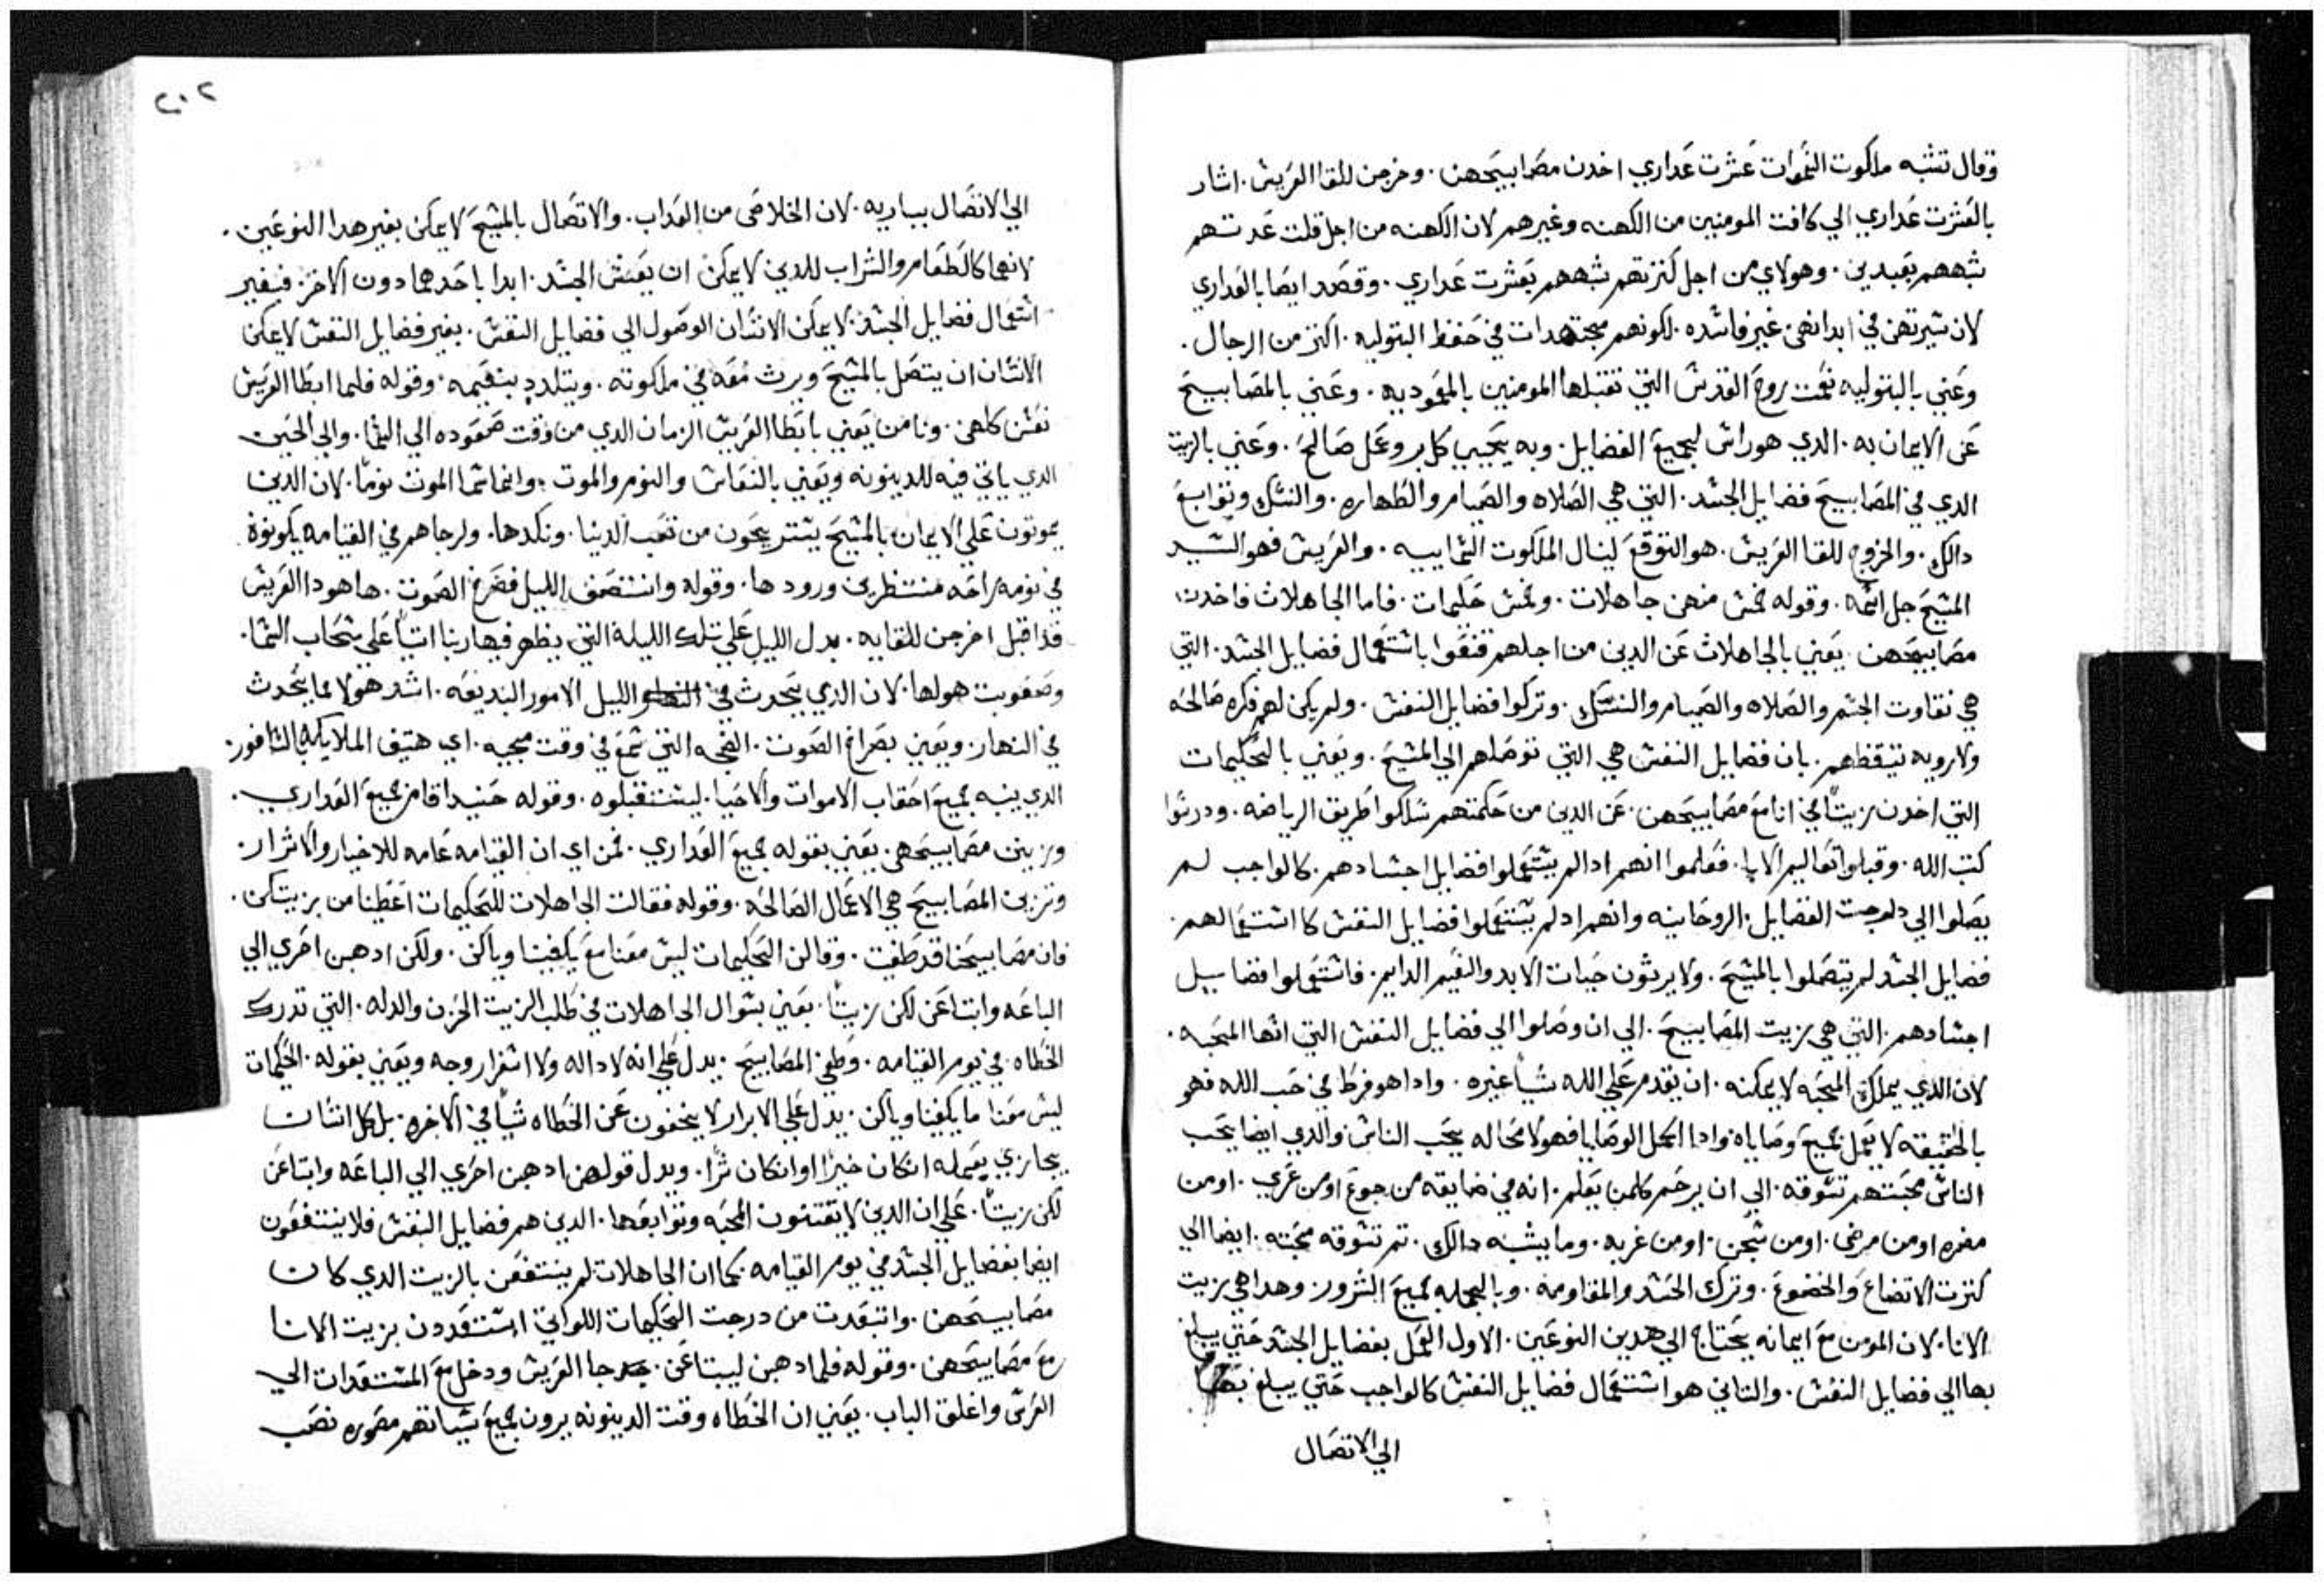 وقال تشبه ملكوت السموات عشرت عداري اخدن مصابيحهن. وخرجن للقا العريس. اشار
بالعشرت عداري الي كافت المومنين من الكهنه وغيرهم لان الكهنه من اجل قلت عدتهم
شبههم بعبدين. وهولاي من اجل كثرتهم شبههم بعشرت عداري. وقصد ايضا بالعداري
لان سيرتهن في ابدانهن غير فاسده. لكونهم مجتهدات في حفظ البتوليه. اكثر من الرجال.
وعني بالبتوليه نعمت روح القدس التي تقبلها المومنين بالمعموديه. وعني بالمصابيح
عن الايمان به. الدي هو راس لجميع الفضايل. وبه يحيي كل بر وعمل صالح. وعني بالزيت
الدي في المصابيح فضايل الجسد. التي هي الصلاه والصيام والطهاره. والنسك وتوابع
دالك. والخروج للقا العريس. هو التوقع لينال الملكوت السماييه. والعريس فهو السيد
المسيح جل اسمه. وقوله خمس منهن جاهلات. وخمس حكيمات. فاما الجاهلات فاخدت
مصابيحهن. يعني بالجاهلات عن الدين من اجلهم قنعوا باستعمال فضايل الجسد. التي
هي نقاوت الجسم والصلاه والصيام والنسك. وتركوا فضايل النفس. ولم يكن لهم فكره صالحه
ولا رويه تيقظهم. بان فضايل النفس هي التي توصلهم الي المسيح. ويعني بالحكيمات
التي اخدن زيتًا في انا مع مصابيحهن. عن الدين من حكمتهم سلكوا طريق الرياضه. ودرسوا
كتب الله. وقبلوا تعاليم الابا. فعلموا انهم ادا لم يستعملوا فضايل اجسادهم. كالواجب لم
يصلوا الي درجت الفضايل. الروحانيه وانهم اد لم يستعملوا فضايل النفس كاستعمالهم.
فضايل الجسد لم يتصلوا بالمسيح. ولا يرثون حيات الابد والنعيم الدايم. فاستعملوا فضايل
اجسادهم. التي هي زيت المصابيح. الي ان وصلوا الي فضايل النفس التي اسها المحبه.
لان الدي يملك المحبه لا يمكنه. ان يقدم علي الله شياً غيره. وادا هو فرط في حب الله فهو
بالحقيقه لا يعمل بجميع وصاياه وادا اكمل الوصايا فهو لا محاله يحب الناس والدي ايضا يحب
الناس محبتهم تسوقه. الي ان يرحم كلمن يعلم. انه في ضايقه من جوع او من عري. او من
مضره او من مرض. او من سجن. او من غربه. وما يشبه دالك. تم تسوقه محبته. ايضا الي
كثرت الاتضاع والخضوع. وترك الحسد والمقاومه. وبالجمله جميع الشرور. وهدا هي زيت
الانا. لان المومن مع ايمانه يحتاج الي هدين النوعين. الاول العمل بفضايل الجسد حتي يبلغ
بها الي فضايل النفس. والتاني هو استعمال فضايل النفس كالواجب حتي يبلغ بها
الي الاتصال
٢٠٢
الي الاتصال بباريه. لان الخلاص من العداب. والاتصال بالمسيح لا يمكن بغير هدا النوعين.
لانهما كالطعام والشراب للدين لا يمكن ان يعيش الجسد. ابدا باحدهما دون الاخر. فبغير
استعمال فضايل الجسد. لا يمكن الانسان الوصول الي فضايل النفس. بغير فضايل النفس لا يمكن
الانسان ان يتصل بالمسيح ويرث معه في ملكوته. ويتلدد بنعيمه. وقوله فلما ابطا العريس
نعسن كلهن. ونامن يعني بابطا العريس الزمان الدي من وقت صعوده الي السما. والي الحين
الدي ياتي فيه للدينونه ويعني بالنعاس والنوم والموت. وانما سما الموت نومًا. لان الدين
يموتون علي الايمان بالمسيح يستريحون من تعب الدنيا. ونكدها. ولرجاهم في القيامه يكونوه
في نومه راحه منتظرين ورودها. وقوله وانتصف الليل فصرخ الصوت. ها هودا العريس
قد اقبل اخرجن للقايه. يدل الليل علي تلك الليله التي يظهر فيها ربنا اتياً علي سحاب السما.
وصعوبت هولها. لان الدي يتحدث في الليل الامور البديعه. اشد هولا مما يتحدث
في النهار. ويعني بصراخ الصوت. الضجه التي تسمع في وقت مجيه. اي هتيف الملايكه بالسافور.
الدي ينبه جميع احقاب الاموات والاحيا. ليستقبلوه. وقوله حنيدا قامن جميع العداري.
وزينن مصابيحهن. يعني بقوله جميع العداري. قمن اي ان القيامه عامه للاخيار والاشرار.
وتزين المصابيح هي الاعمال الصالحه. وقوله فقالت الجاهلات للحكيمات اعطينا من زيتكن.
فان مصابيحنا قد طفيت. وقالن الحكيمات ليس معنا مع يكفينا وياكن. ولكن ادهبن احري الي
الباعه وابتاعن لكن زيتًا. يعني بسوال الجاهلات في طلب الزيت الحزن والدله. التي تدرك
الخطاه. في يوم القيامه. وطفي المصابيح. يدل علي انه لا داله ولا اسفرار وجه ويعني بقوله. الحكيمات
ليس معنا ما يكفينا وياكن. يدل علي الابرار لا يخففون عن الخطاه شياً في الاخره. بل كل انسان
يجازي بعمله انكان خيرًا او انكان شرًا. ويدل قولهن ادهبن احري الي الباعه وابتاعن
لكن زيتًا. علي ان الدين لا يقتنون المحبه وتوابعها. الدين هم فضايل النفس فلا ينتفعون
ايضا بفضايل الجسد في يوم القيامه. كما ان الجاهلات لم ينتفعن بالزيت الدي كان
مصابيحهن. وابتعدت من درجت الحكيمات اللواتي استعددن بزيت الانا
مع مصابيحهن. وقوله فلما دهبن ليبتاعن. جا العريس ودخل مع المستعدات الي
العرس واغلق الباب. يعني ان الخطاه وقت الدينونه يرون جميع سياتهم مصوره نصب